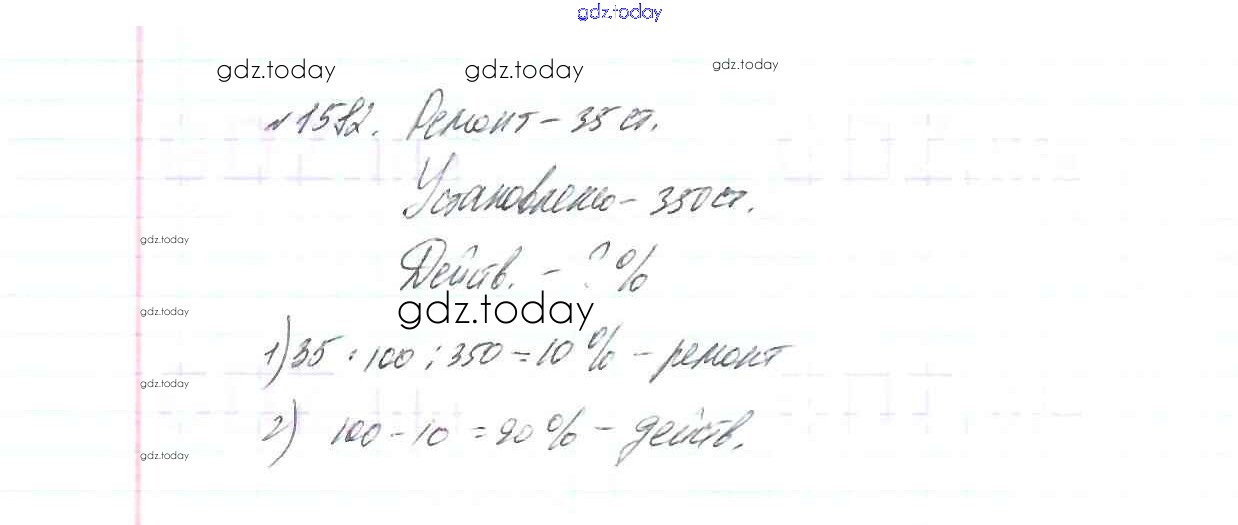 gdz.today
gdz.today gdz.today gdz.today
№1582. Ремонт – 35 ст.
Установлено – 350 ст.
gdz.today
Действ. – ? %
gdz.today
gdz.today
1) 35 · 100 : 350 = 10 % – ремонт
gdz.today
2) 100 – 10 = 90 % – действ.
gdz.today